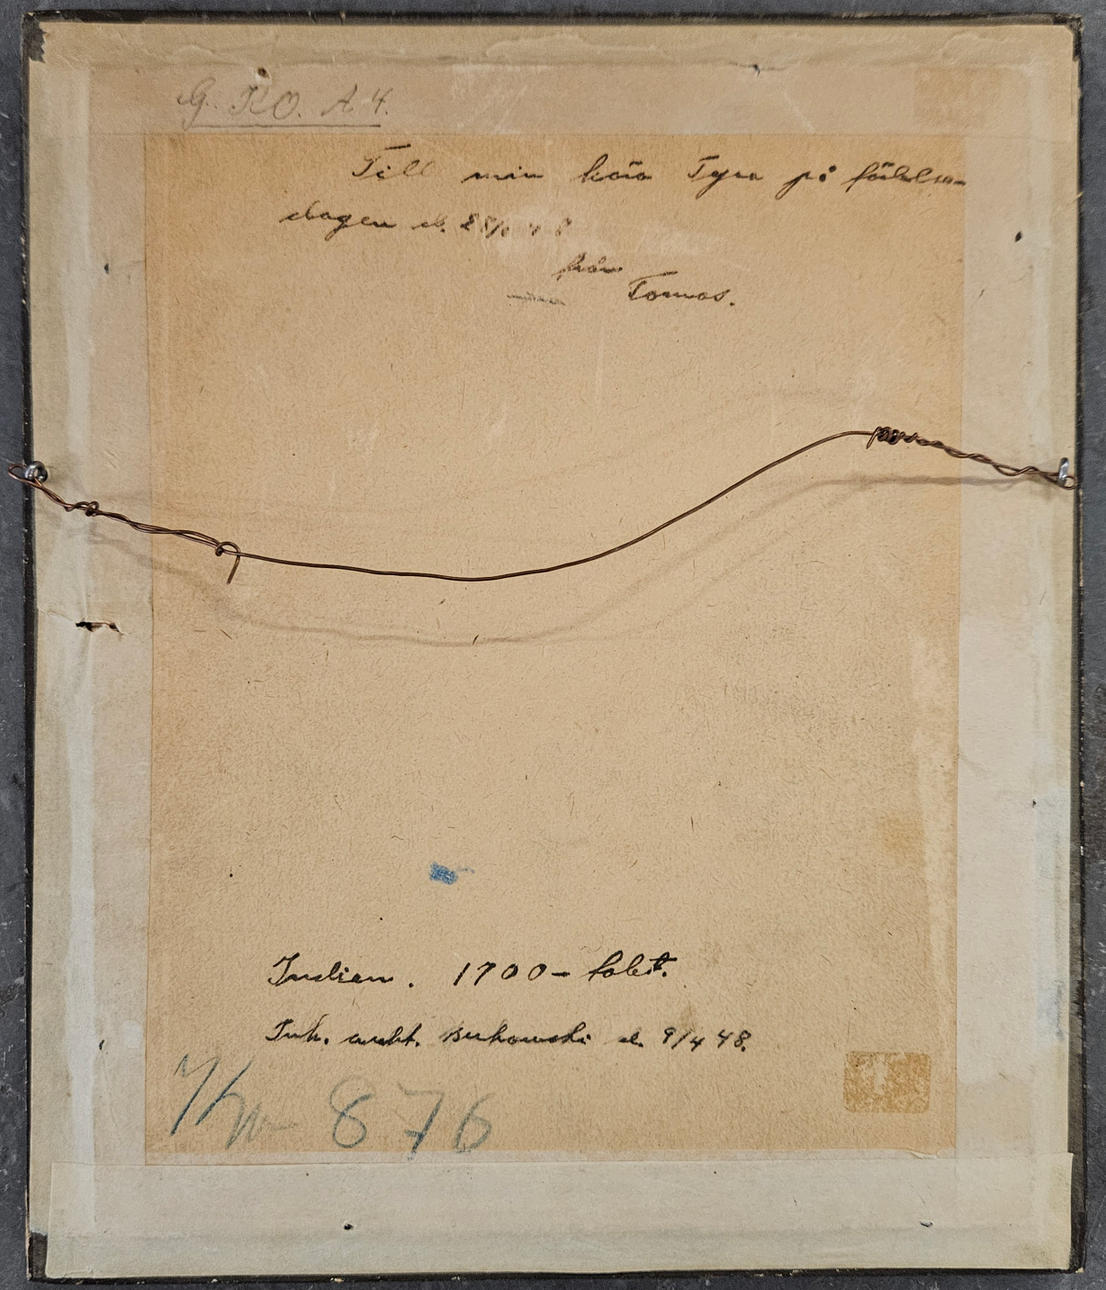 G. KO. A 4.
Till min kära Tyra på födelse-
dagen d. 28/6 48
från
Tomas.
Indien. 1700- talet.
Ink. aukt. Bukowski d. 9/4 48.
876